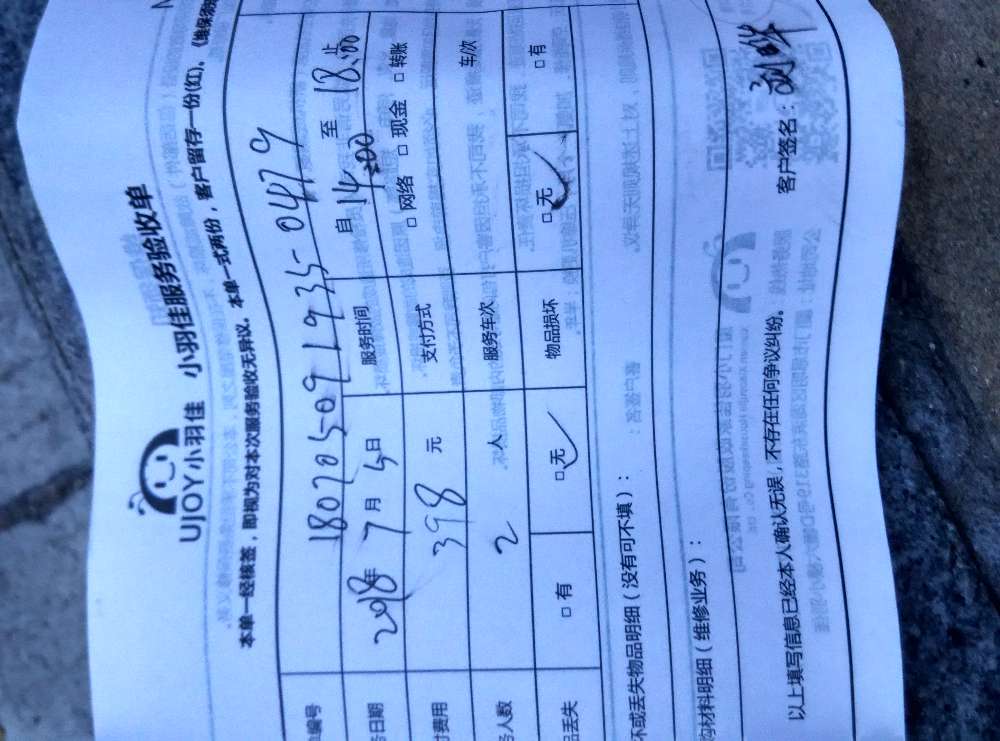 UJOY小羽佳 小羽佳服务验收单
本单一经核签，即视为对本次服务验收无异议。本单一式两份，客户留存一份(红)、《维保
编号 180705-0919 35-0479
日期 2018年 7月 5日 服务时间 自 14:00 至 18:00 止
付费用 398 元 支付方式 □ 网络 □ 现金 □ 转账
务人数 2 人 服务车次 车/次
品丢失 □ 有 □ 无 ✓ 物品损坏 □ 无 ✓ □ 有
坏或丢失物品明细（没有可不填）：
购材料明细（维修业务）：
以上填写信息已经本人确认无误，不存在任何争议纠纷。 客户签名：